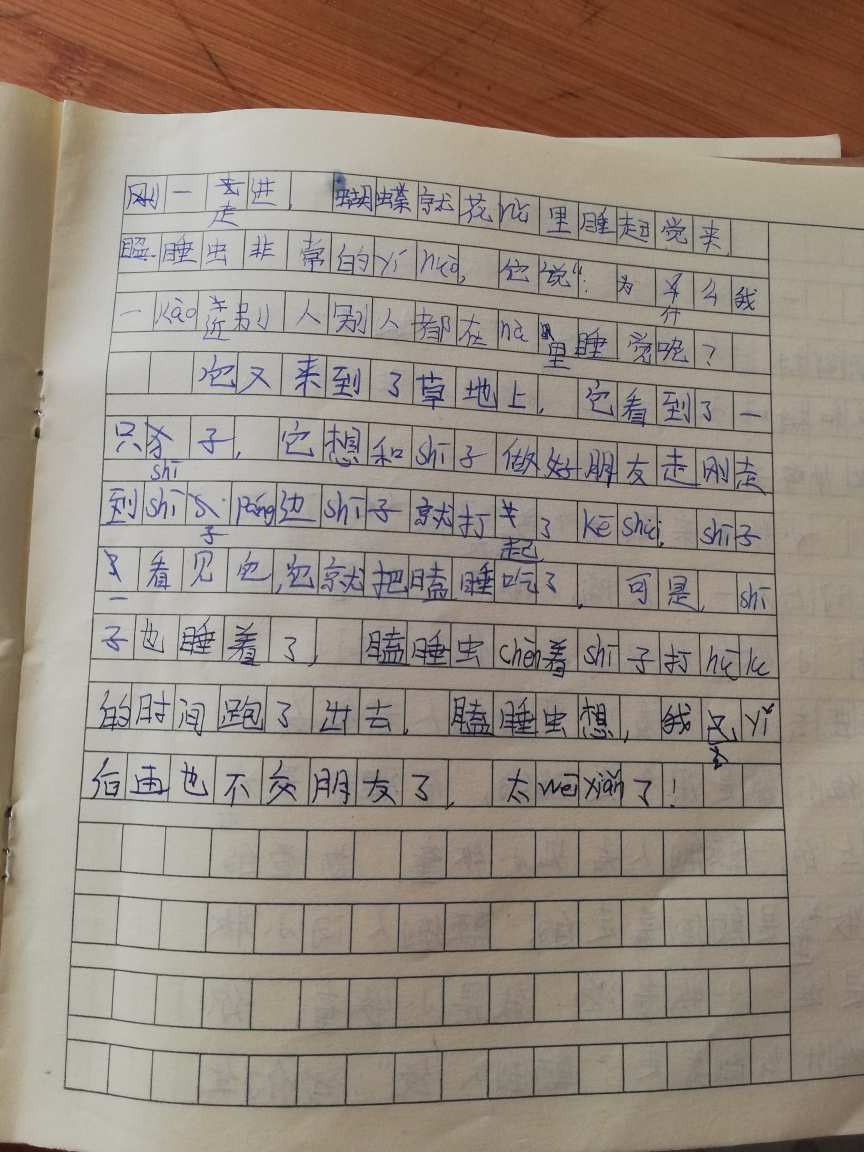 刚一走进,蝴蝶就花cóng里睡起觉来,
瞌睡虫非常的yí huò,它说“:为什么我
一kào近别人别人都在nà里睡觉呢?
它又来到了草地上,它看到了一
只shī子,它想和shī子做好朋友走刚走
到shī子páng边shī子就打起了kē shuì,shī子
一看见它,它就把瞌睡吃了,可是,shī
子也睡着了,瞌睡虫chèn着shī子打hū lu
的时间跑了出去,瞌睡虫想,我yǐ
后再也不交朋友了,太wēi xiǎn了!